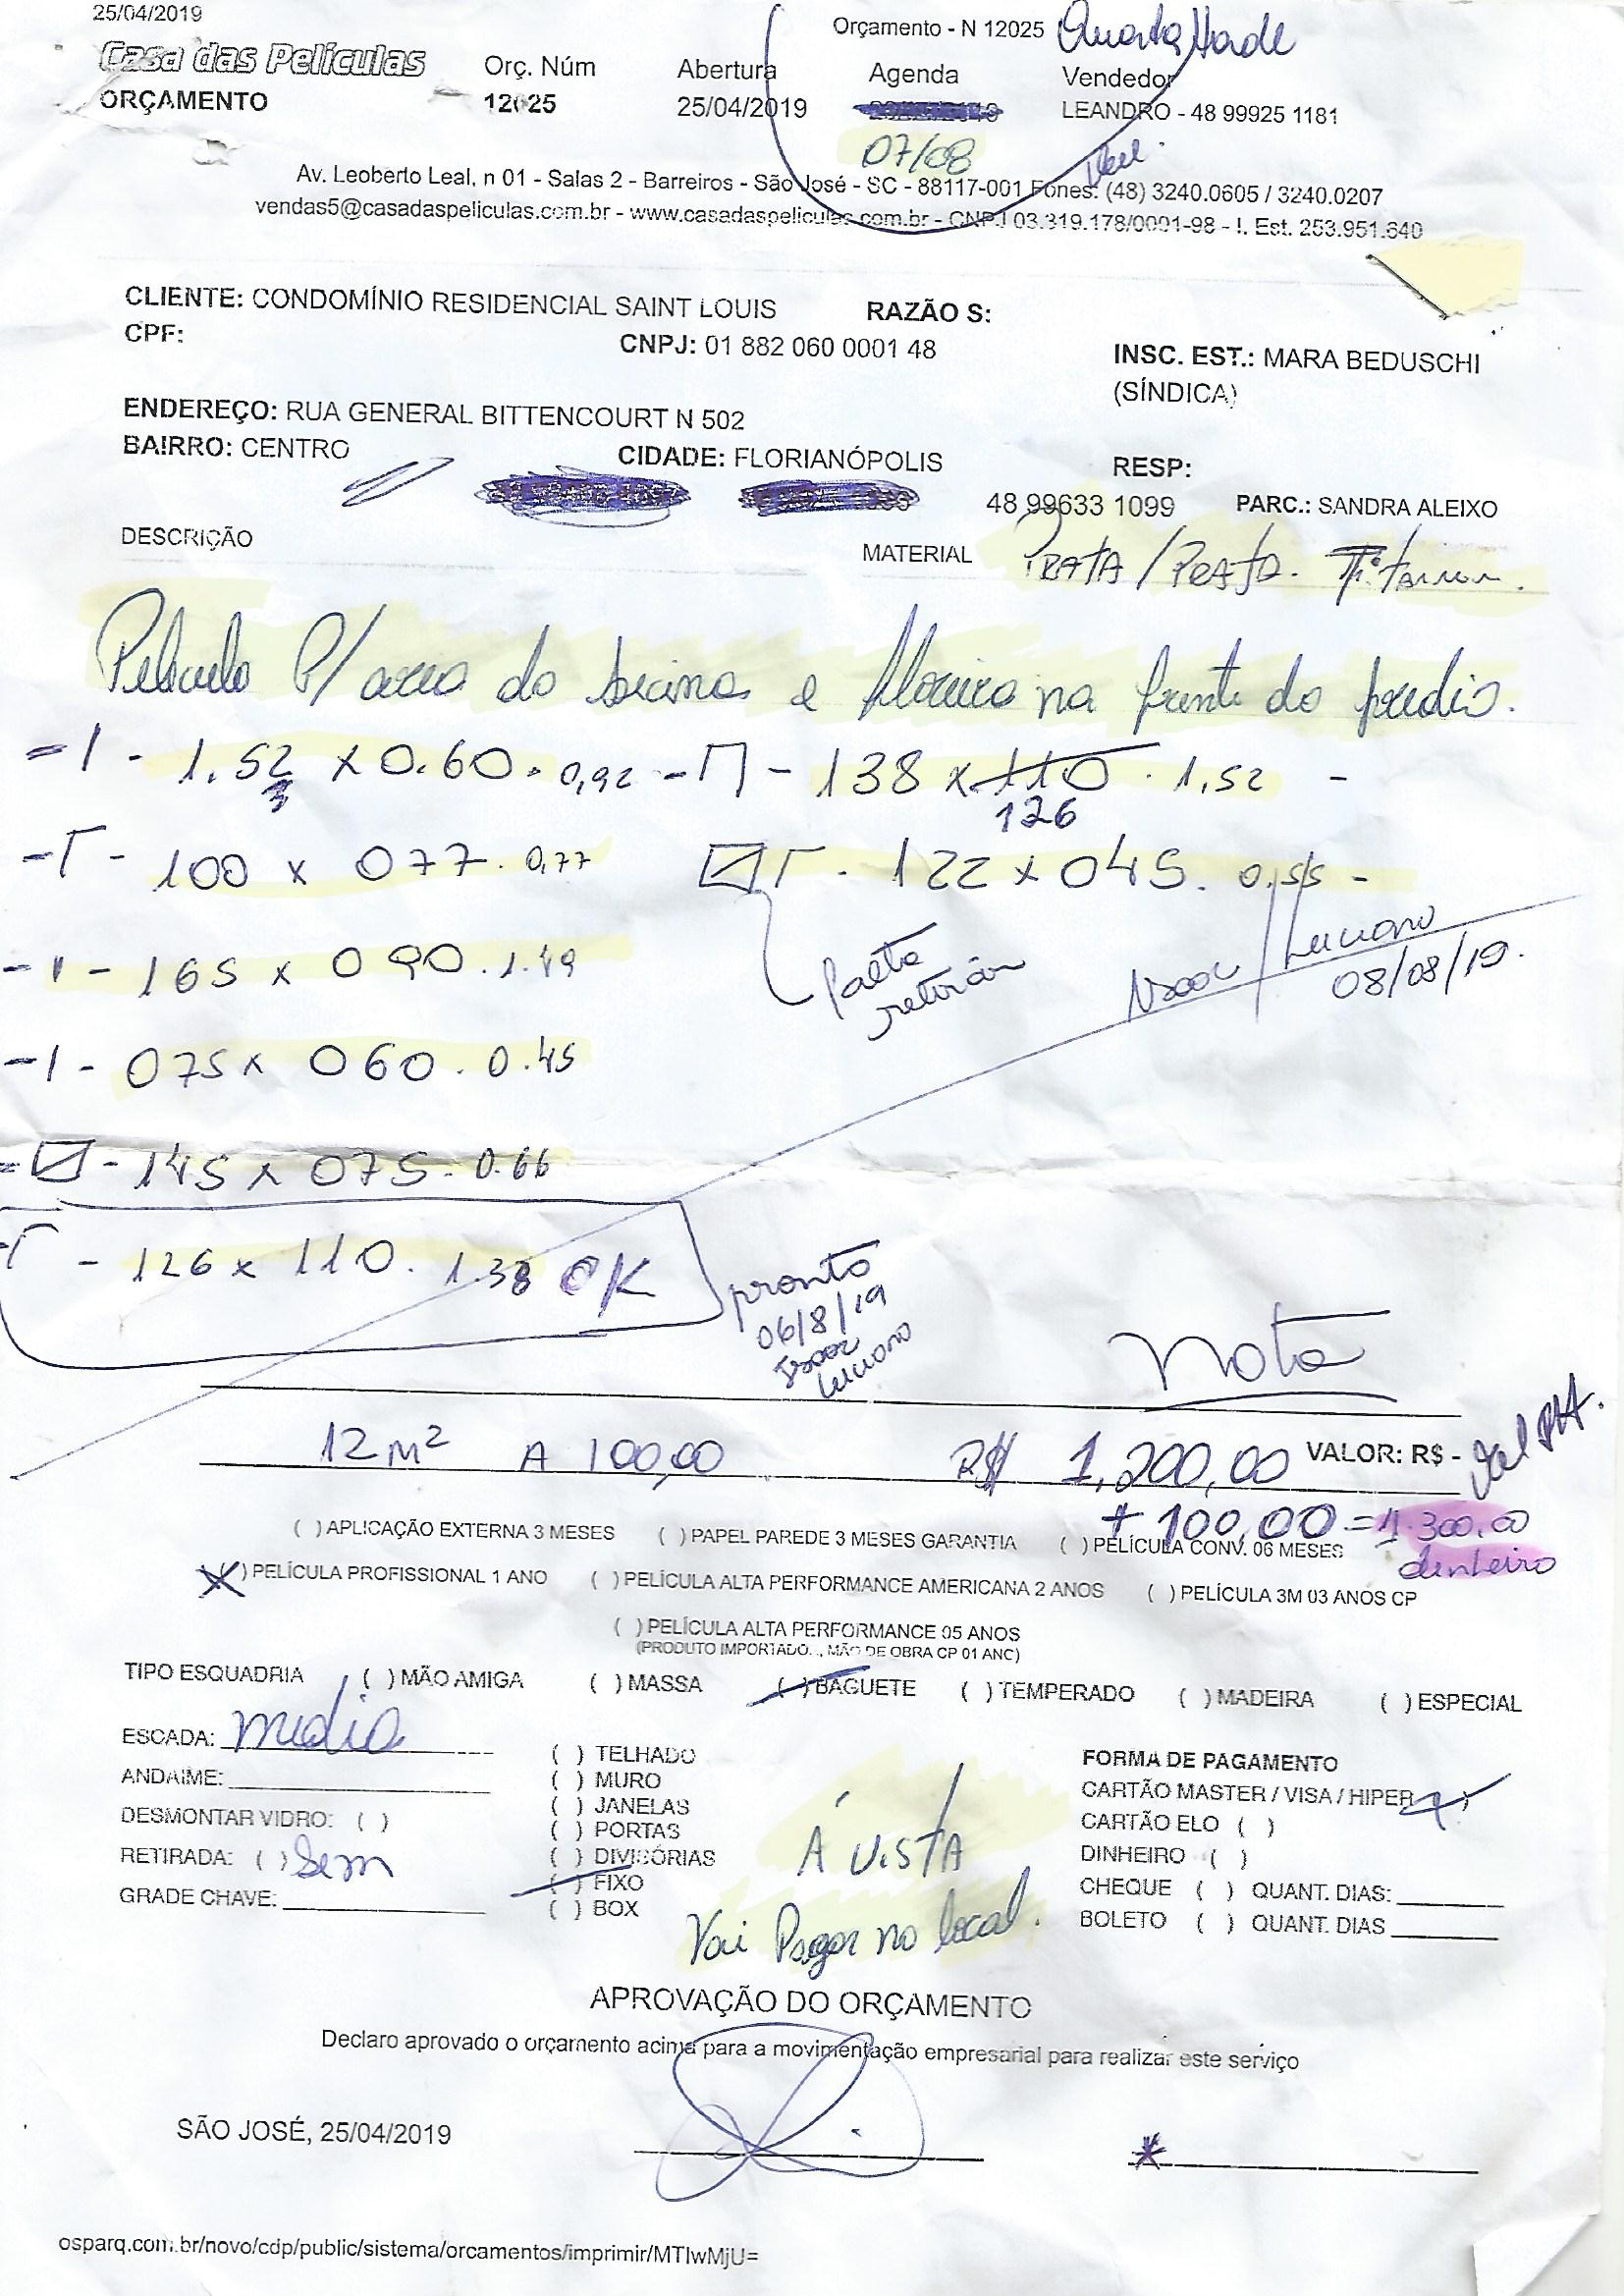 25/04/2019
Orçamento - N 12025
Casa das Películas
ORÇAMENTO
Orç. Núm
12025
Abertura
25/04/2019
Agenda
07/08
Vendedor
LEANDRO - 48 99925 1181
Av. Leoberto Leal, n 01 - Salas 2 - Barreiros - São José - SC - 88117-001 Fones: (48) 3240.0605 / 3240.0207
vendas5@casadaspeliculas.com.br - www.casadaspeliculas.com.br - CNPJ 03.319.178/0001-98 - I. Est. 253.951.640
CLIENTE: CONDOMÍNIO RESIDENCIAL SAINT LOUIS RAZÃO S:
CPF: CNPJ: 01 882 060 0001 48 INSC. EST.: MARA BEDUSCHI
(SÍNDICA)
ENDEREÇO: RUA GENERAL BITTENCOURT N 502
BAIRRO: CENTRO CIDADE: FLORIANÓPOLIS RESP:
48 99633 1099 PARC.: SANDRA ALEIXO
DESCRIÇÃO MATERIAL PRATA / PRATA.
Pelicula P/ area do e na frente do predio.
- 1.52 x 0.60 . 0,92 - 138 x 110 . 1,52 -
126
- 100 x 077 . 0,77 122 x 045 . 0,55 -
- 165 x 090 . 1.49
Falta
Isaac / Luciano
08/08/19.
- 075 x 060 . 0.45
- 145 x 075 . 0.66
- 126 x 110 . 1.38 OK
pronto
06/8/19
Isaac
Luciano
Nota
12 M² A 100,00 R$ 1,200,00 VALOR: R$ -
+ 100,00 = 1.300,00
dinheiro
( ) APLICAÇÃO EXTERNA 3 MESES ( ) PAPEL PAREDE 3 MESES GARANTIA ( ) PELÍCULA CONV. 06 MESES
(X) PELÍCULA PROFISSIONAL 1 ANO ( ) PELÍCULA ALTA PERFORMANCE AMERICANA 2 ANOS ( ) PELÍCULA 3M 03 ANOS CP
( ) PELÍCULA ALTA PERFORMANCE 05 ANOS
(PRODUTO IMPORTADO.., MÃO DE OBRA CP 01 ANO)
TIPO ESQUADRIA ( ) MÃO AMIGA ( ) MASSA ( ) BAGUETE ( ) TEMPERADO ( ) MADEIRA ( ) ESPECIAL
ESCADA: media
ANDAIME:
DESMONTAR VIDRO: ( )
RETIRADA: ( ) Sem
GRADE CHAVE:
( ) TELHADO
( ) MURO
( ) JANELAS
( ) PORTAS
( ) DIVISÓRIAS
( ) FIXO
( ) BOX
Á VISTA
Vai Pagar no local.
FORMA DE PAGAMENTO
CARTÃO MASTER / VISA / HIPER (x)
CARTÃO ELO ( )
DINHEIRO ( )
CHEQUE ( ) QUANT. DIAS:
BOLETO ( ) QUANT. DIAS
APROVAÇÃO DO ORÇAMENTO
Declaro aprovado o orçamento acima para a movimentação empresarial para realizar este serviço
SÃO JOSÉ, 25/04/2019
osparq.com.br/novo/cdp/public/sistema/orcamentos/imprimir/MTIwMjU=